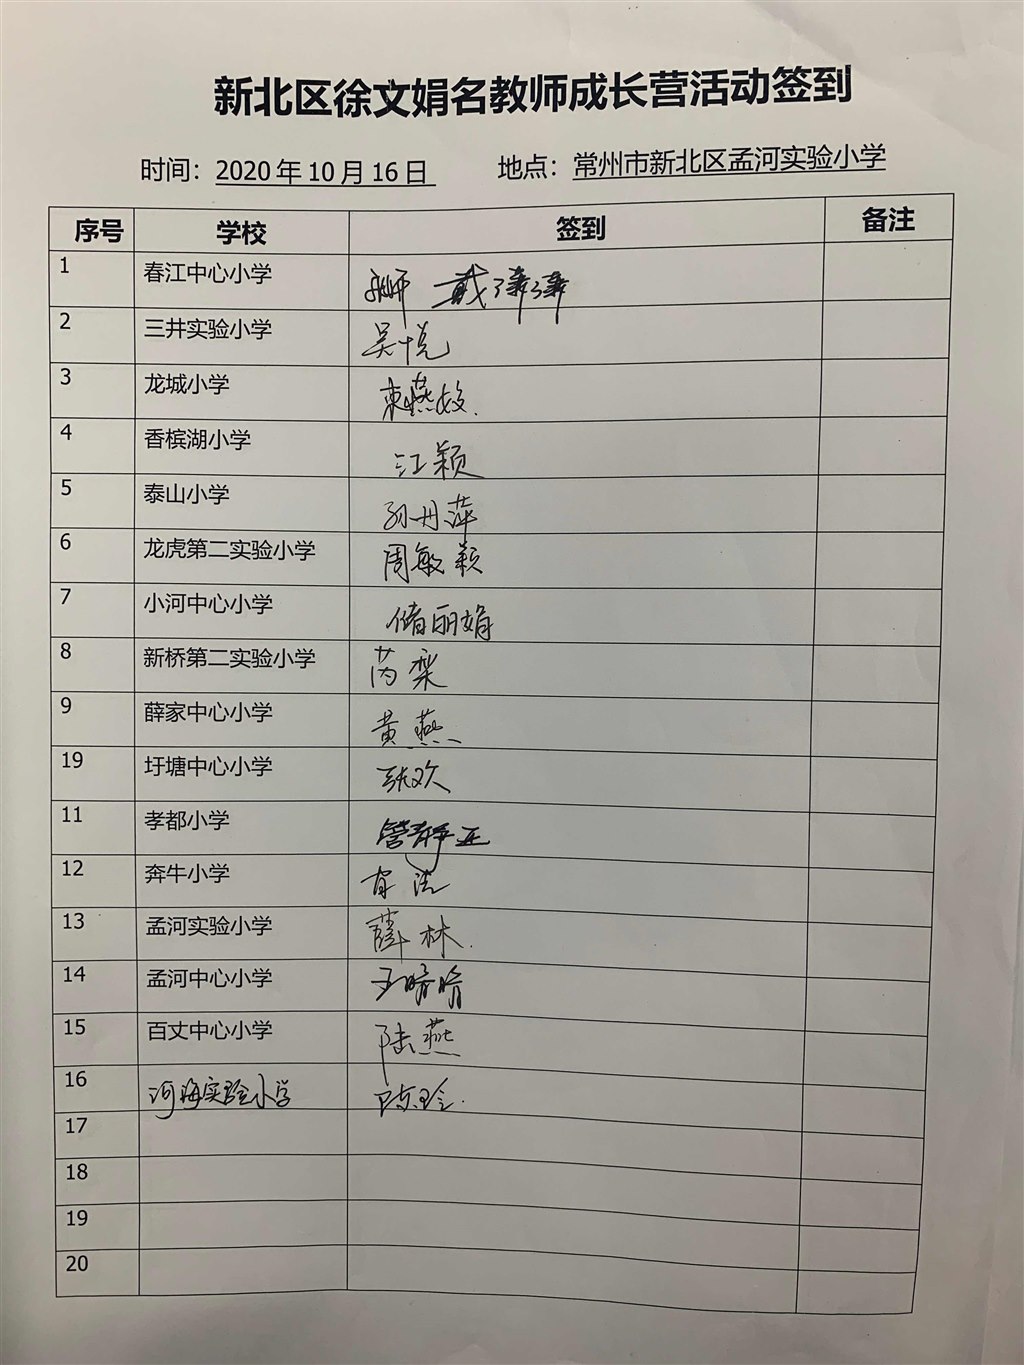 新北区徐文娟名教师成长营活动签到
时间：2020 年 10 月 16 日 地点：常州市新北区孟河实验小学
序号 学校 签到 备注
1 春江中心小学 戴
2 三井实验小学 吴悦
3 龙城小学 束燕姣
4 香槟湖小学 江颖
5 泰山小学 孙丹萍
6 龙虎第二实验小学 周敏颖
7 小河中心小学 储丽娟
8 新桥第二实验小学 芮
9 薛家中心小学 黄燕
19 圩塘中心小学 张欢
11 孝都小学 管静
12 奔牛小学
13 孟河实验小学 薛林
14 孟河中心小学 王晴晴
15 百丈中心小学 陆燕
16 河海实验小学 陈玲
17
18
19
20